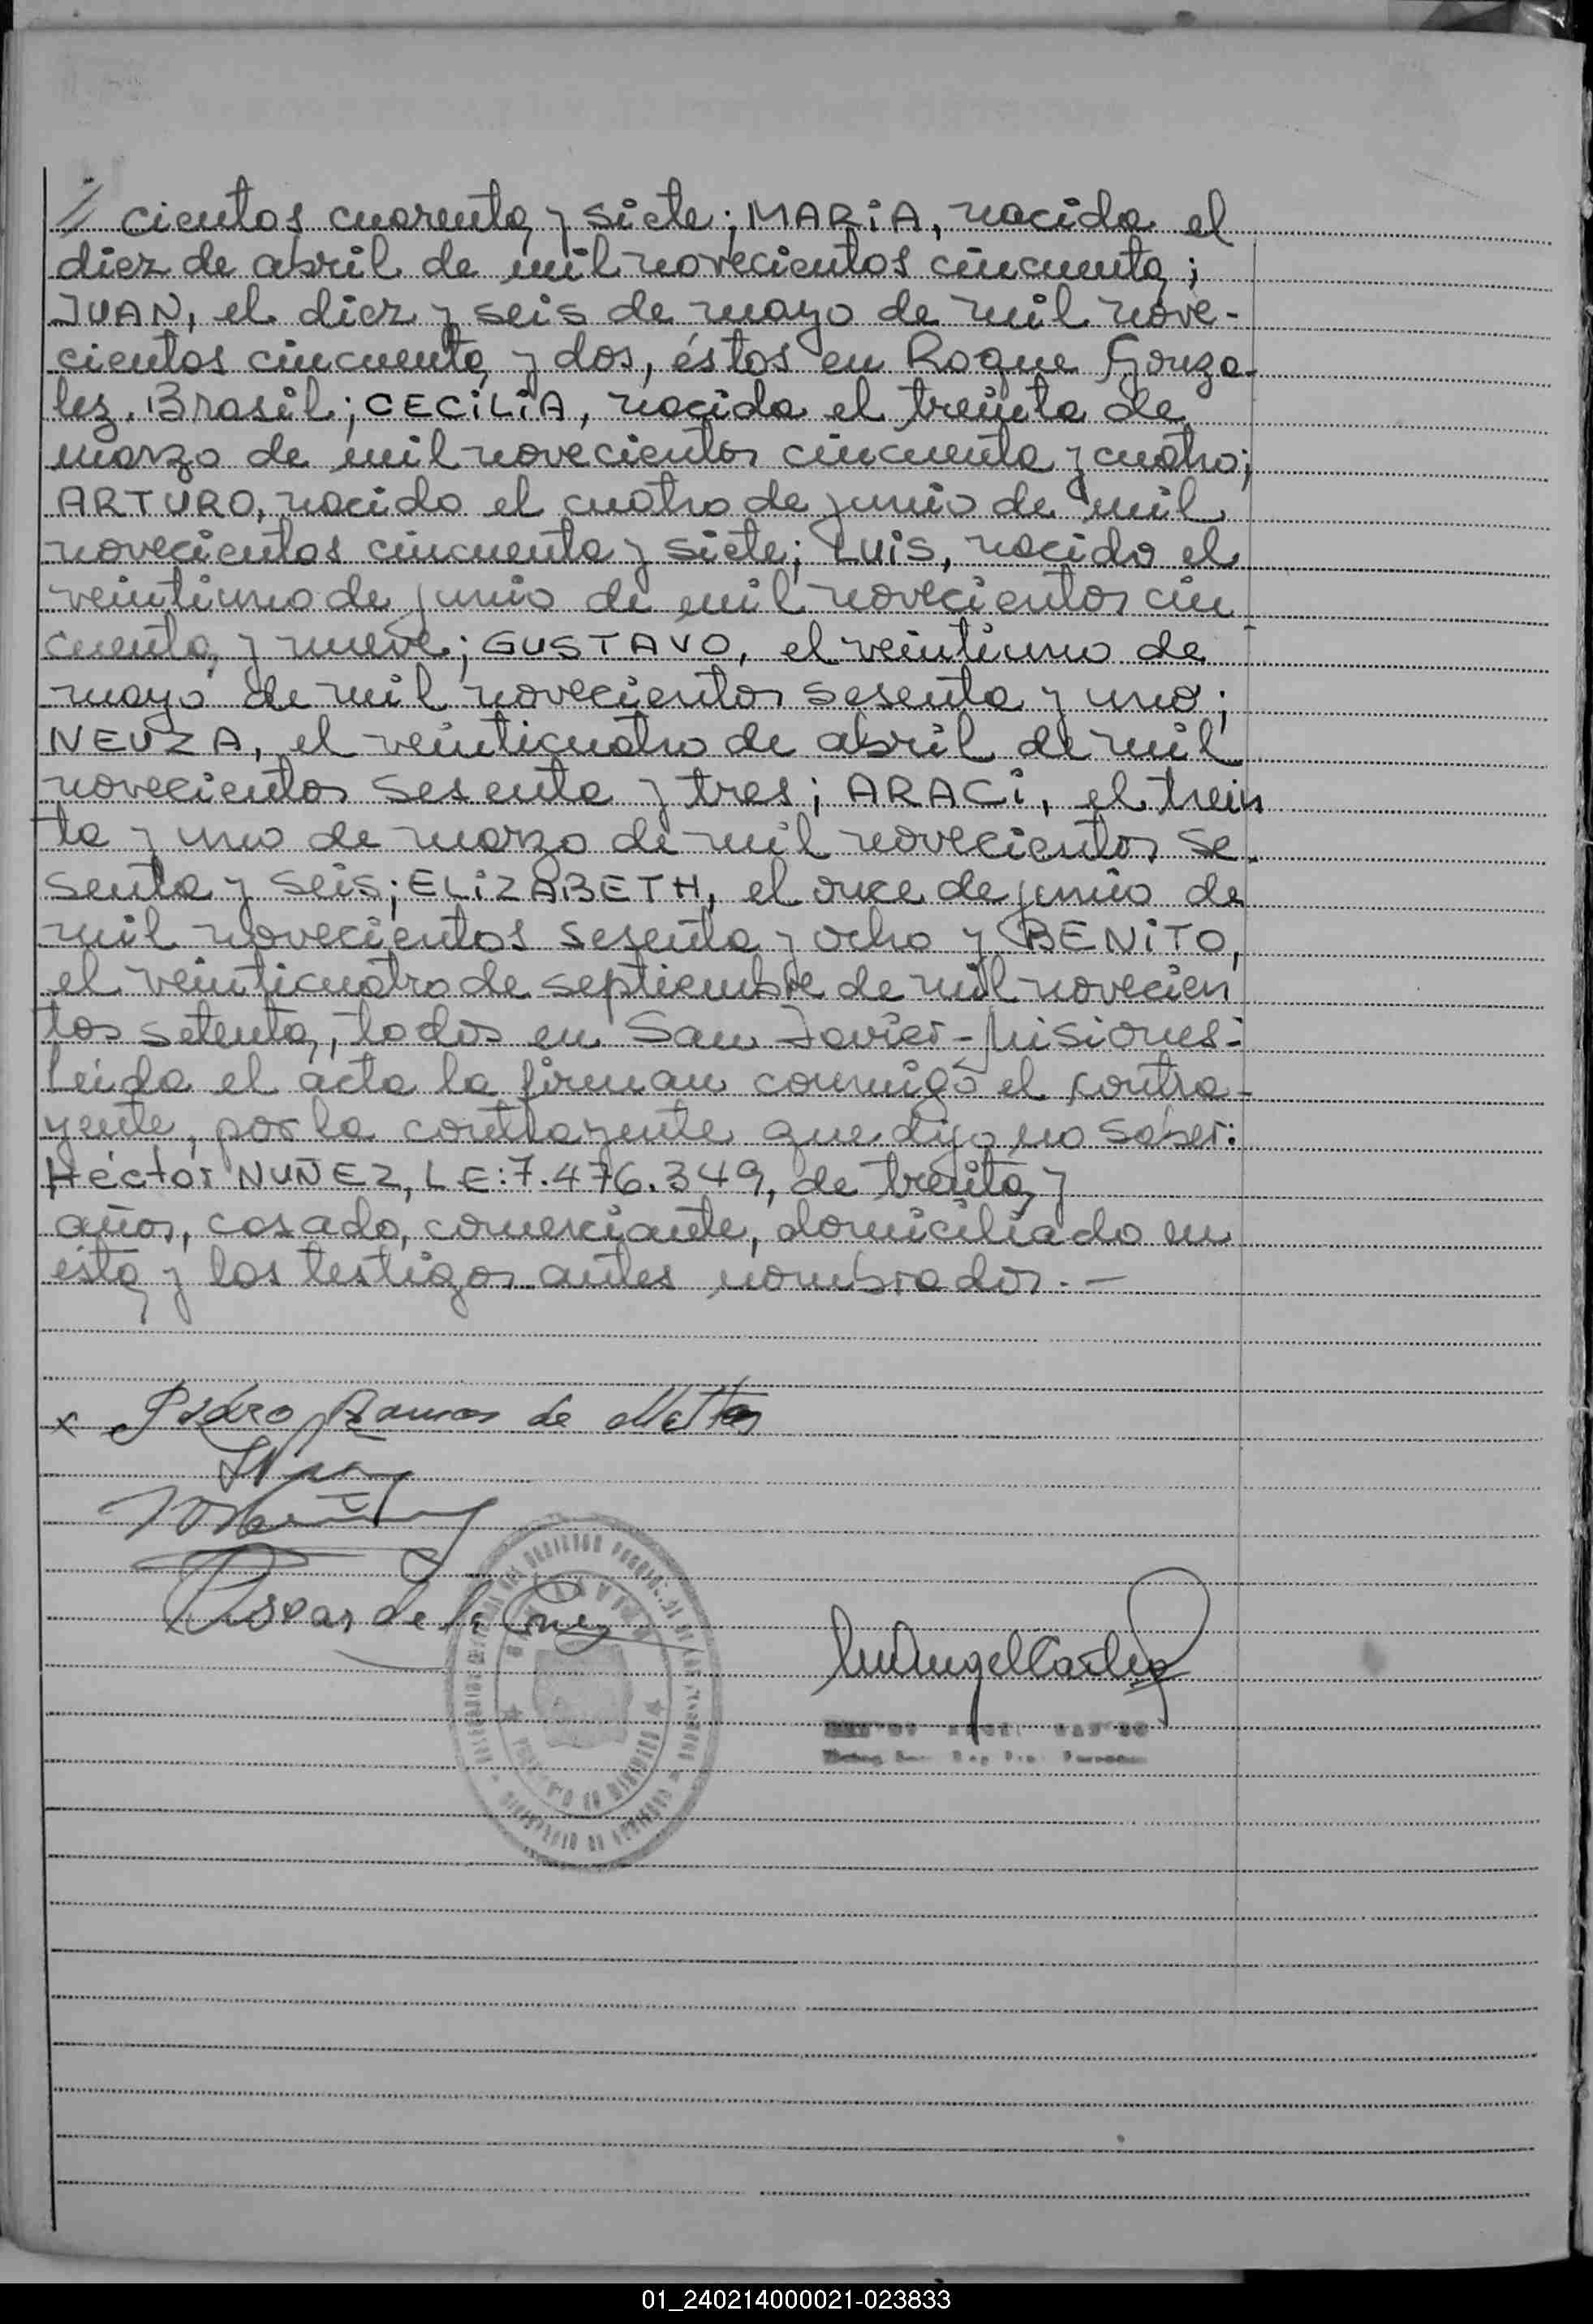 // cientos cuarenta y siete; MARiA, nacida el
diez de abril de mil novecientos cincuenta;
JUAN, el diez y seis de mayo de mil nove-
cientos cincuenta y dos, éstos en Roque Gonza-
lez. Brasil; CECiLiA, nacida el treinta de
marzo de mil novecientos cincuenta y cuatro;
ARTURO, nacido el cuatro de junio de mil
novecientos cincuenta y siete; LUiS, nacido el
veintiuno de junio de mil novecientos cin
cuenta y nueve; GUSTAVO, el veintiuno de
mayo de mil novecientos sesenta y uno;
NEUZA, el veinticuatro de abril de mil
novecientos sesenta y tres; ARACi, el trein
ta y uno de marzo de mil novecientos se-
senta y seis; ELiZABETH, el once de junio de
mil novecientos sesenta y ocho y BENiTO,
el veinticuatro de septiembre de mil novecien
tos setenta, todos en San Javier-Misiones-
Leída el acta la firman conmigo el contra-
yente, por la contrayente que dijo no saber:
Héctor NUÑEZ, LE:7.476.349, de treinta y
años, casado, comerciante, domiciliado en
ésta y los testigos antes nombrados.-
x Pedro Ramos de Mattos
Oscar de la Cruz
01_240214000021-023833